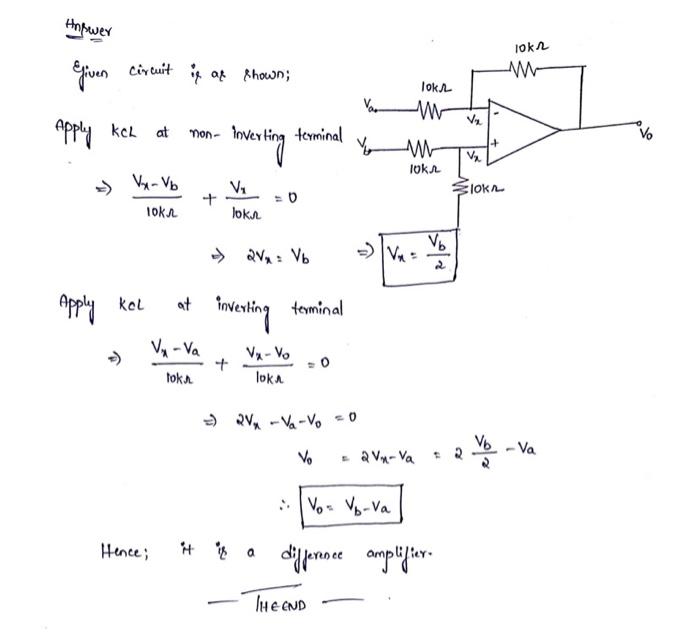 Answer
Given circuit is as shown;
10kΩ
10kΩ
Va
Vx
-
Apply KCL at non-inverting terminal
Vb
Vx
+
Vo
10kΩ
10kΩ
⇒ (Vx-Vb)/10kΩ + Vx/10kΩ = 0
⇒ 2Vx = Vb ⇒ Vx = Vb/2
Apply KCL at inverting terminal
⇒ (Vx-Va)/10kΩ + (Vx-Vo)/10kΩ = 0
⇒ 2Vx -Va-Vo = 0
Vo = 2Vx-Va = 2 Vb/2 - Va
∴ Vo = Vb-Va
Hence; it is a difference amplifier.
— THE END —